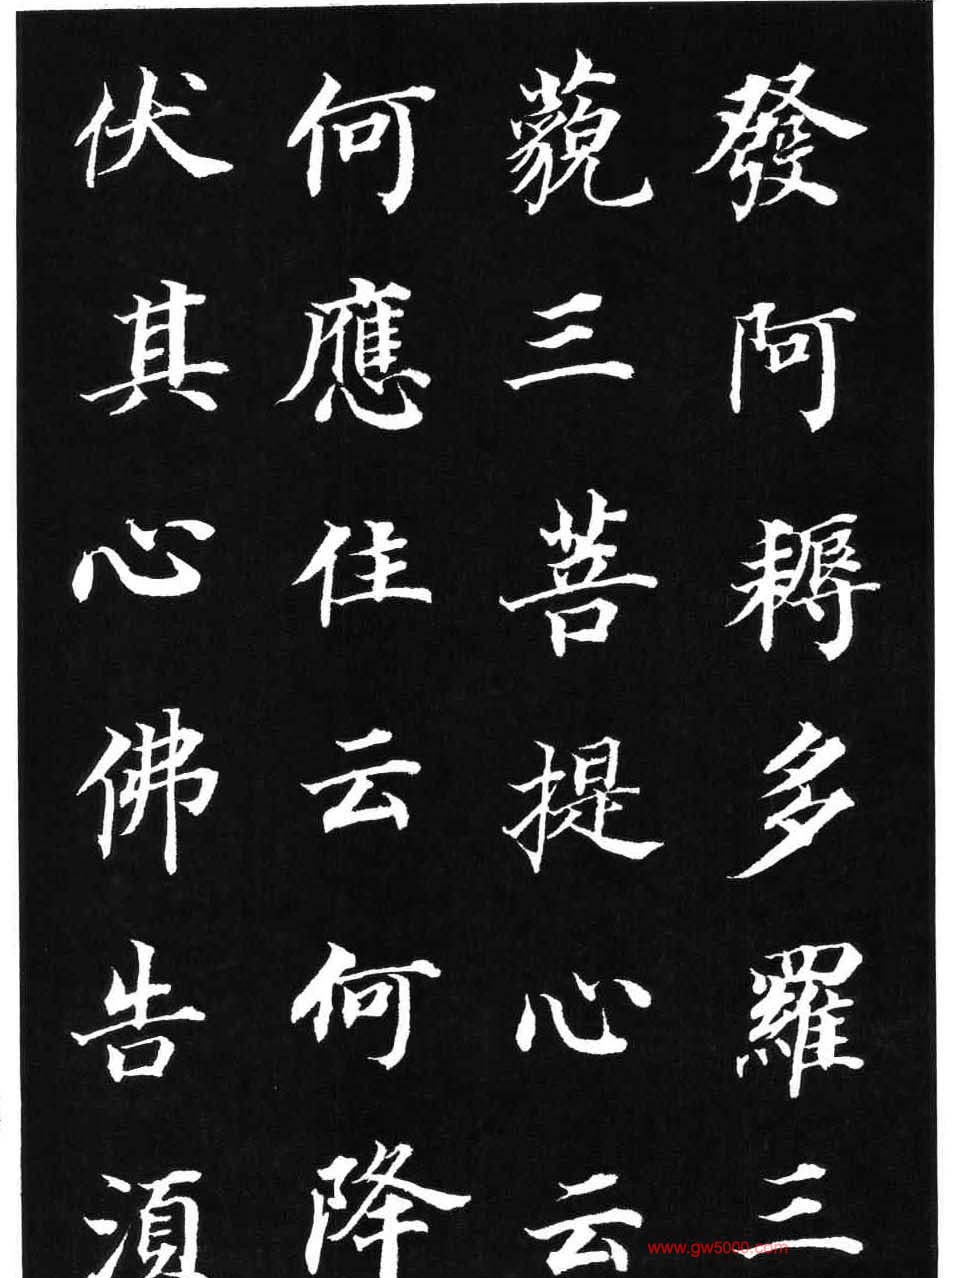 發阿耨多羅三
藐三菩提心云
何應住云何降
伏其心佛告須
www.gw5000.com